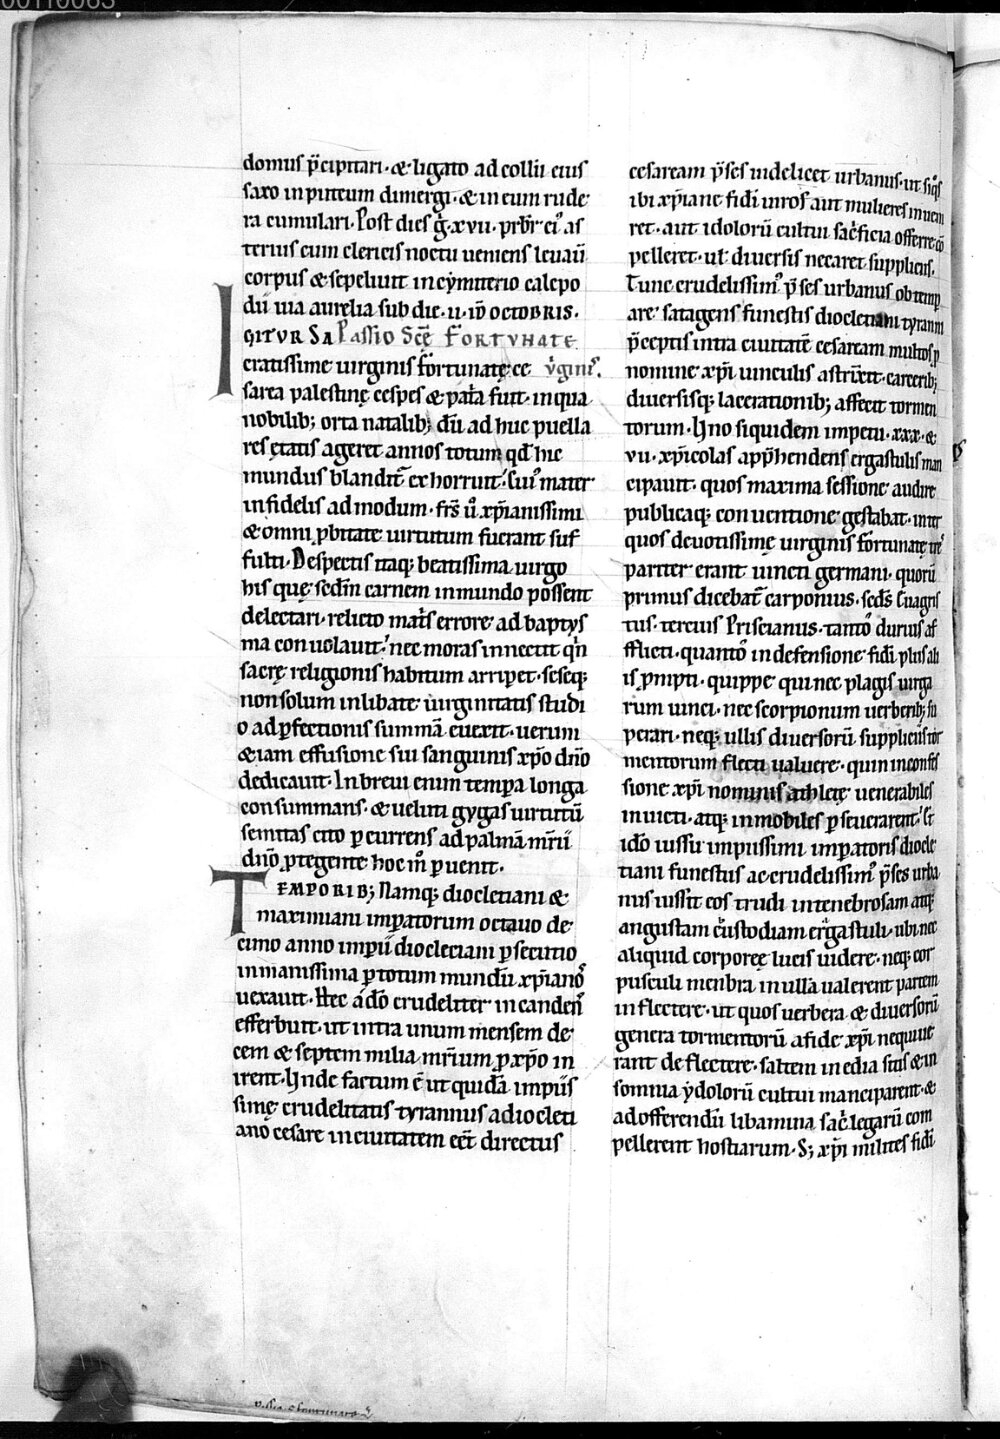 domus p̄cipitari· & ligato ad collū eius
saxo in puteum dimergi· & in eum rude
ra cumulari· Post dies g̊· xvii· prbr̄ ei᾽ as
terius cum clericis noctu ueniens leuauit
corpus & sepeliuit in cymiterio calepo
dii uia aurelia sub die· ii· id᾽ octobris·
Passio Scē Fortunate v̊ginis᾽.
IGITVR SA
cratissime uirginis fortunatę ce
sarea palestinę cespes & pat̄a fuit· in qua
nobilib; orta natalib; dū ad huc puella
res ętatis ageret annos totum qd̄ hic
mundus blandit̄ exhorruit· Cui᾽ mater
infidelis admodum· frs̄ ū xp̄ianissimi
& omni ꝓbitate uirtutum fuerant suf
fulti· Despectis itaq; beatissima uirgo
his quę sed̄m carnem in mundo possent
delectari· relicto mat̄s errore ad baptys
ma conuolauit· nec moras innectit q̄n
sacrę religionis habitum arripet· seseq;
non solum inlibate uirginitatis studi
o ad ꝑfectionis summā euexit· uerum
& iam effusione sui sanguinis xp̄o dn̄o
dedicauit· In breui enim tempa longa
consummans· & ueluti gygas uirtutū
semitas cito ꝑcurrens ad palmā mr̄ii
dn̄o ꝓtegente hoc m̊ ꝑuenit·
TEMPORIB; Namq; diocletiani &
maximiani impatorum octauo de
cimo anno impii diocleciani ꝑsecutio
inmanissima ꝑ totum mundū xp̄ianos᾽
uexauit· Hec ádo crudeliter incandens
efferbuit· ut intra unum mensem de
cem & septem milia mr̄ium ꝓ xp̄o in
irent· Hinde factum ē ut quidā impiis
simę crudelitatis tyrannus a diocleti
ano cesare in ciuitatem eēt directus
cesaream p̄ses uidelicet urbanus· ut siq̊s
ibi xp̄iane fidi uiros aut mulieres inueni
ret· aut idolorū cultui sac̄ficia offerre cō
pelleret· ut diuersis necaret suppliciis·
Tunc crudelissim᾽ p̄ses urbanus obtemp
are satagens funestis diocletiani tyranni
p̄ceptis intra ciuitatē cesaream multos ꝓ
nomine xp̄i uinculis astrixit· carcerib;
diuersisq; lacerationib; affecit tormen
torum· Uno siquidem impetu· xxx· &
vii· xp̄icolas app̄hendens ergastulis man
cipauit· quos maxima sessione audire
publicaq; conuentione gestabat· inter
quos deuotissimę uirginis fortunatę tres
pariter erant uincti germani· quorū
primus dicebat̄ carponius· sed̄s Euagris
tus· tercius Priscianus· tanto᾽ durius af
fflicti· quanto᾽ in defensione fidi plus alii
is ꝓmpti· quippe qui nec plagis uirga
rum uinci· nec scorpionum uerberib; su
perari· neq; ullis diuersorū suppliciis tor
mentorum flecti ualuere· quin in confes
sione xp̄i nominis athletę uenerabiles
inuicti· atq; inmobiles ꝑseuerarent· Et
ido̊ iussu impiissimi impatoris diocle
tiani funestus ac crudelissim᾽ p̄ses urba
nus iussit eos trudi in tenebrosam atq;
angustam custodiam ergastuli· ubi nec
aliquid corporeę lucis uidere· neq; cor
pusculi menbra in ullā ualerent partem
inflectere· ut quos uerbera & diuersorū
genera tormentorū a fide xp̄i nequiue
rant deflectere· saltem inedia sitis & in
somnia ydolorū cultui manciparent· &
ad offerendū libamina sac̄legarū com
pellerent hostiarum· S; xp̄i milites fidi